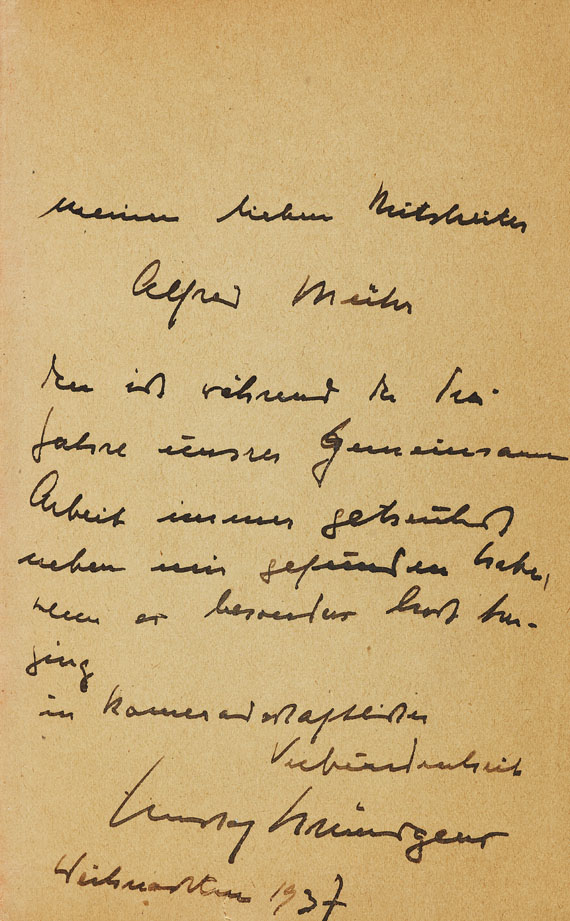 meinem lieben Mitarbeiter
Alfred Mühr
den ich während der drei
Jahre unsrer Gemeinsamen
Arbeit immer getreulich
neben mir gefunden habe,
wenn es besonders hoch her-
ging
in kameradschaftlicher
Verbundenheit
Gustaf Gründgens
Weihnachten 1937